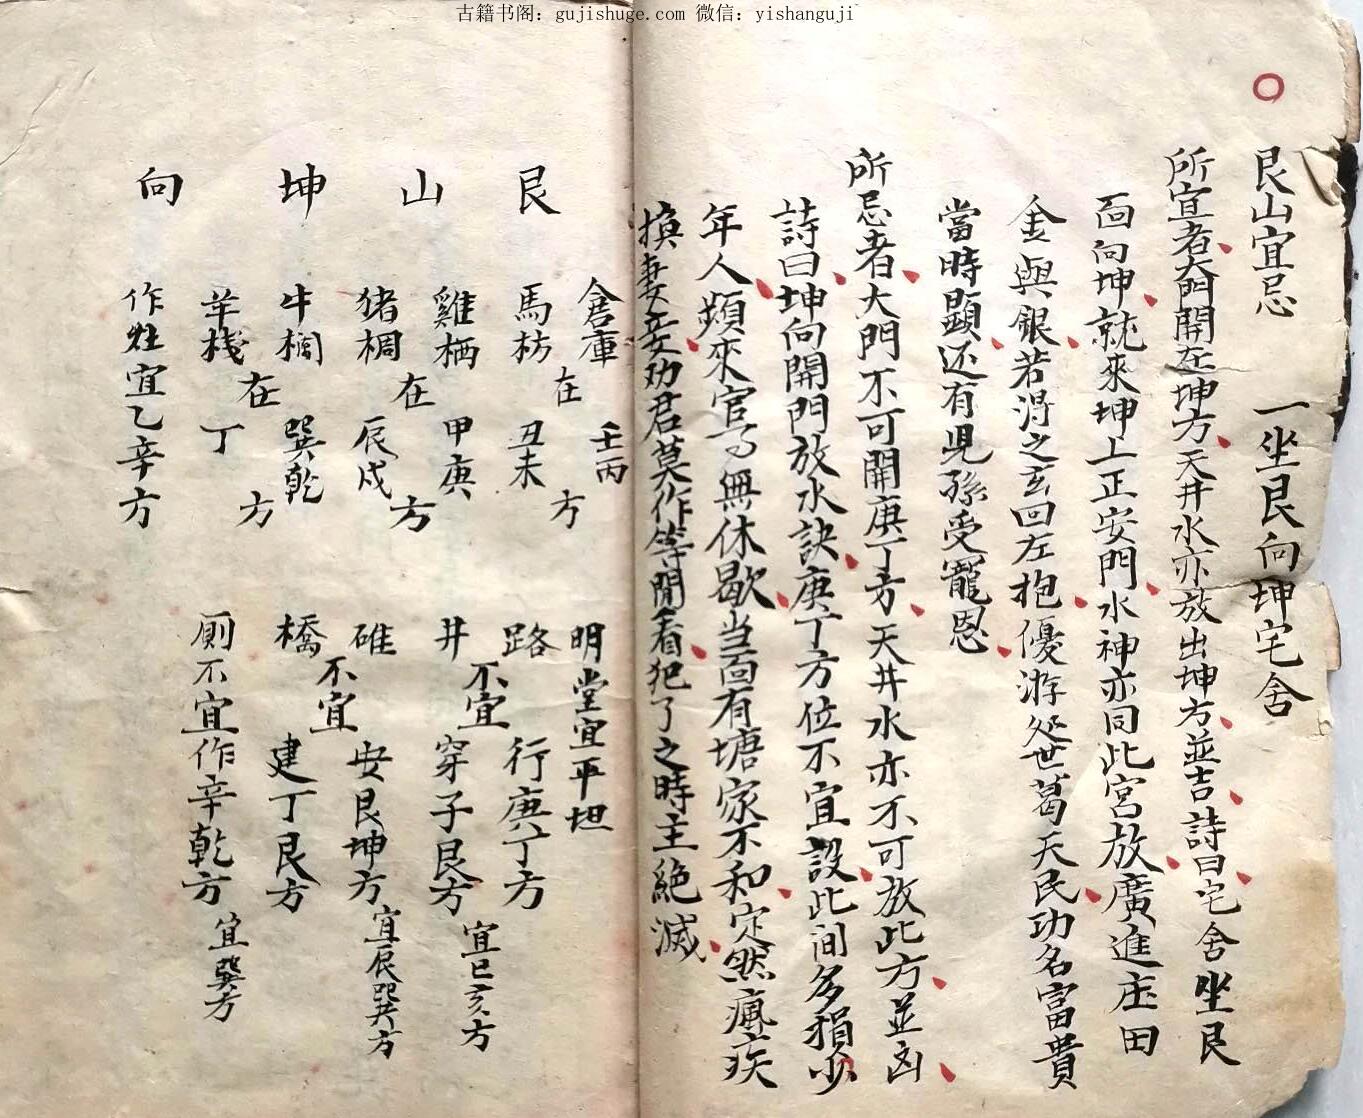 古籍书阁：gujishuge.com 微信：yishanguji
艮山宜忌　一坐艮向坤宅舍
所宜者大門開在坤方天井水亦放出坤方並吉詩曰宅舍坐艮
面向坤就來坤上正安門水神亦同此宮放廣進庄田
金與銀若得之玄回左抱優游处世葛天民功名富貴
當時顯还有児孫受寵恩
所忌者大門不可開庚丁方天井水亦不可放此方並凶
詩曰坤向開門放水訣庚丁方位不宜設此间多損少
年人頻來官了無休歇当面有塘家不和定然瘋疾
換妻妾劝君莫作等閒看犯了之時主絕滅
艮　山　坤　向
倉庫　壬丙
馬枋　在　丑未　方
雞栖　甲庚
猪椆　在　辰戌　方
牛欄　巽乾
羊棧　在　丁　方
作灶宜乙辛方
明堂宜平坦
路　行庚丁方
井　不宜　穿子艮方　宜巳亥方
碓　安艮坤方　宜辰巽方
橋　不宜　建丁艮方
厠不宜作辛乾方　宜巽方